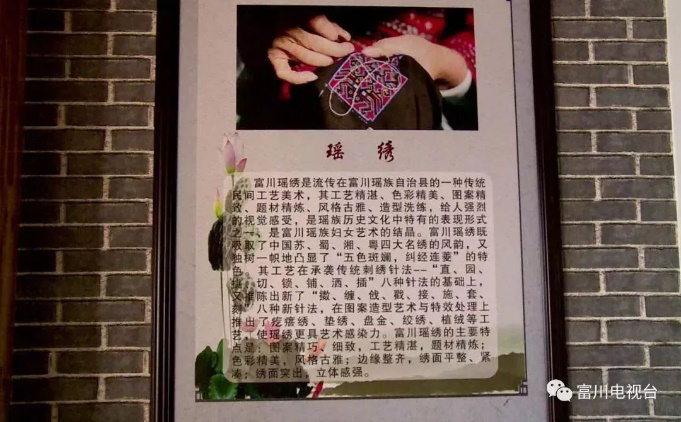 瑶 绣
富川瑶绣是流传在富川瑶族自治县的一种传统
民间工艺美术，其工艺精湛、色彩精美、图案精
致、题材精炼、风格古雅、造型洗练，给人强烈
的视觉感受，是瑶族历史文化中特有的表现形式
之一、是富川瑶族妇女艺术的结晶。富川瑶绣既
吸取了中国苏、蜀、湘、粤四大名绣的风韵，又
独树一帜地凸显了“五色斑斓，纠经连菱”的特
色。其工艺在承袭传统刺绣针法--“直、园、
切、锁、铺、洒、插”八种针法的基础上，
又推陈出新了“擞、缠、戗、戳、接、施、套、
刻”八种新针法，在图案造型艺术与特效处理上
推出了疙瘩绣、垫绣、盘金、绞绣、植绒等工
艺，使瑶绣更具艺术感染力。富川瑶绣的主要特
点是：图案精巧、细致，工艺精湛，题材精炼；
色彩精美，风格古雅；边缘整齐，绣面平整、紧
凑；绣面突出，立体感强。
富川电视台